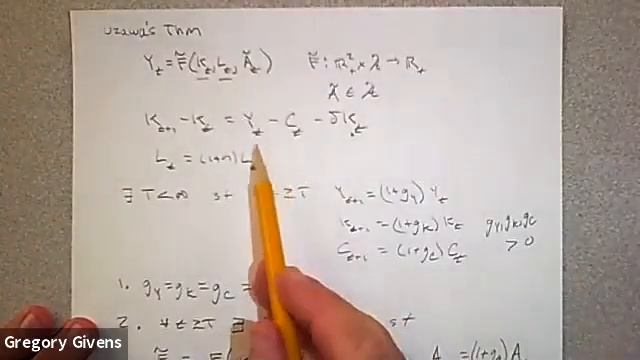 Uzawa's Thm
Y_t = F̃(K_t, L_t, Ã_t)   F̃: ℝ²₊ × 𝒜 → ℝ₊
Ã ∈ 𝒜
K_{t+1} - K_t = Y_t - C_t - δK_t
L_t = (1+n) L
∃ T<∞ st ≥T   Y_{t+1} = (1+g_Y) Y_t
K_{t+1} = (1+g_K) K_t   g_Y, g_K, g_C
C_{t+1} = (1+g_C) C_t   > 0
1. g_Y = g_K = g_C
2. ∀ t ≥ T ∃ st
Gregory Givens